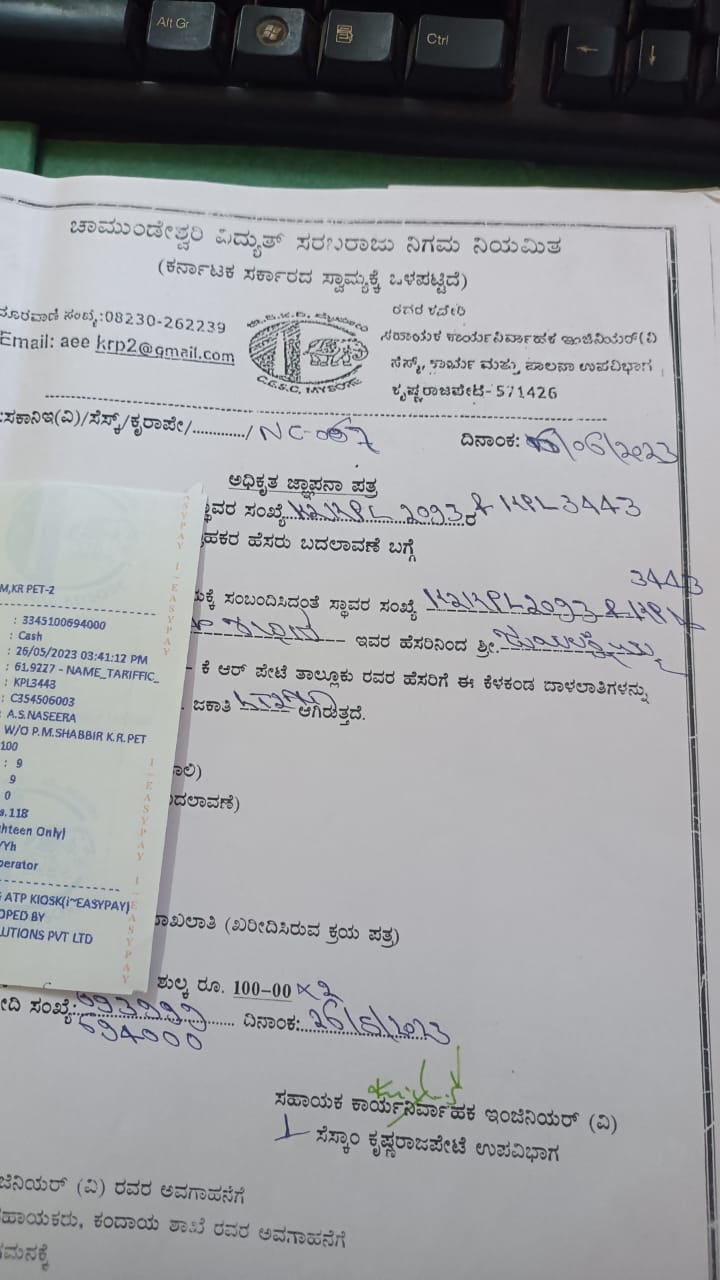 Alt Gr
Ctrl
ಚಾಮುಂಡೇಶ್ವರಿ ವಿದ್ಯುತ್ ಸರಬರಾಜು ನಿಗಮ ನಿಯಮಿತ
(ಕರ್ನಾಟಕ ಸರ್ಕಾರದ ಸ್ವಾಮ್ಯಕ್ಕೆ ಒಳಪಟ್ಟಿದೆ)
ದೂರವಾಣಿ ಸಂಖ್ಯೆ:08230-262239
Email: aee krp2@gmail.com
C.E.S.C, MYSORE
ರವರ ಕಛೇರಿ
ಸಹಾಯಕ ಕಾರ್ಯನಿರ್ವಾಹಕ ಇಂಜಿನಿಯರ್(ವಿ
ಸೆಸ್ಕ್, ಕಾರ್ಯ ಮತ್ತು ಪಾಲನಾ ಉಪವಿಭಾಗ
ಕೃಷ್ಣರಾಜಪೇಟೆ-571426
ಸಕಾನಿಇ(ವಿ)/ಸೆಸ್ಕ್/ಕೃರಾಪೇ/............/ NC-067
ದಿನಾಂಕ: /06/2023
ಅಧಿಕೃತ ಜ್ಞಾಪನಾ ಪತ್ರ
ಸ್ಥಾವರ ಸಂಖ್ಯೆ 2093ರ & KPL 3443
ಹಕರ ಹೆಸರು ಬದಲಾವಣೆ ಬಗ್ಗೆ
3443
ಕ್ಕೆ ಸಂಬಂದಿಸಿದಂತೆ ಸ್ಥಾವರ ಸಂಖ್ಯೆ 2093 & KPL
ಇವರ ಹೆಸರಿನಿಂದ ಶ್ರೀ.
ಕೆ ಆರ್ ಪೇಟೆ ತಾಲ್ಲೂಕು ರವರ ಹೆಸರಿಗೆ ಈ ಕೆಳಕಂಡ ಬಾಳಲಾತಿಗಳನ್ನು
ಜಕಾತಿ ಆಗಿರುತ್ತದೆ.
ಾಲಿ)
ದಲಾವಣೆ)
ಾಖಲಾತಿ (ಖರೀದಿಸಿರುವ ಕ್ರಯ ಪತ್ರ)
ಶುಲ್ಕ ರೂ. 100-00 x 2
ೀದಿ ಸಂಖ್ಯೆ: 693999 ದಿನಾಂಕ: 26/5/2023
694000
ಸಹಾಯಕ ಕಾರ್ಯನಿರ್ವಾಹಕ ಇಂಜಿನಿಯರ್ (ವಿ)
ಸೆಸ್ಕಾಂ ಕೃಷ್ಣರಾಜಪೇಟೆ ಉಪವಿಭಾಗ
ಜಿನಿಯರ್ (ವಿ) ರವರ ಅವಗಾಹನೆಗೆ
ಹಾಯಕರು, ಕಂದಾಯ ಶಾಖೆ ರವರ ಅವಗಾಹನೆಗೆ
ಗಮನಕ್ಕೆ
M,KR PET-2
: 3345100694000
: Cash
: 26/05/2023 03:41:12 PM
: 61.9227 - NAME_TARIFFIC_
: KPL3443
: C354506003
: A.S.NASEERA
W/O P.M.SHABBIR K.R.PET
100
: 9
9
0
s.118
hteen Only)
YYh
perator
ATP KIOSK(i~EASYPAY)
OPED BY
LUTIONS PVT LTD
EASYPAY I-EASYPAY
I-EASYPAY I-EASYPAY